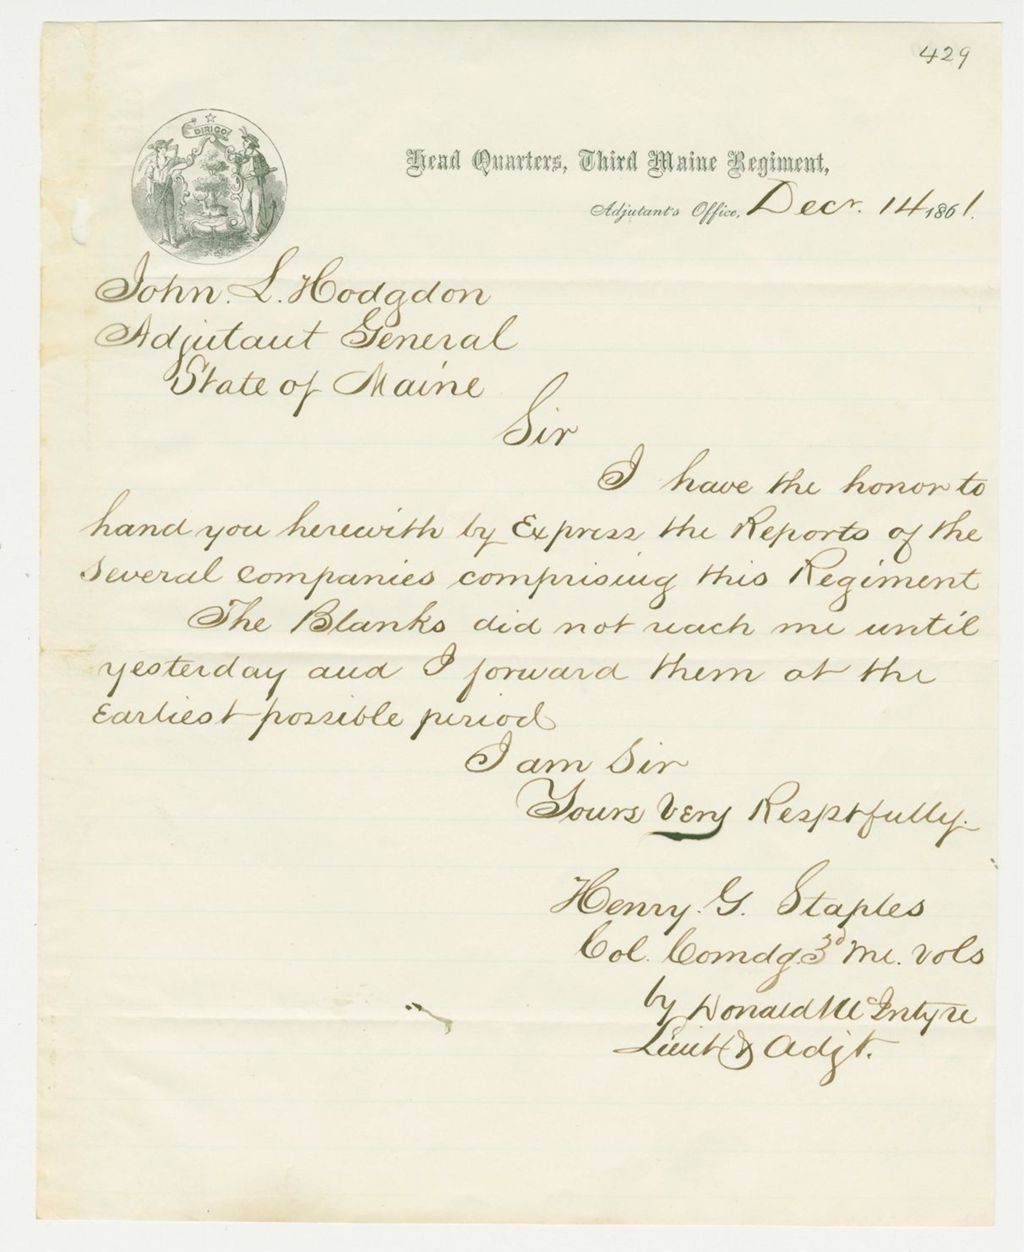 429
DIRIGO
Head Quarters, Third Maine Regiment,
Adjutant's Office, Decr. 14 1861.
John. L. Hodgdon
Adjutant General
State of Maine
Sir
I have the honor to
hand you herewith by Express the Reports of the
several companies comprising this Regiment
The Blanks did not reach me until
yesterday and I forward them at the
Earliest possible period
I am Sir
Yours Very Resptfully.
Henry. G. Staples
Col. Comdg. 3d Me. Vols
by Donald McIntyre
Lieut & Adjt.